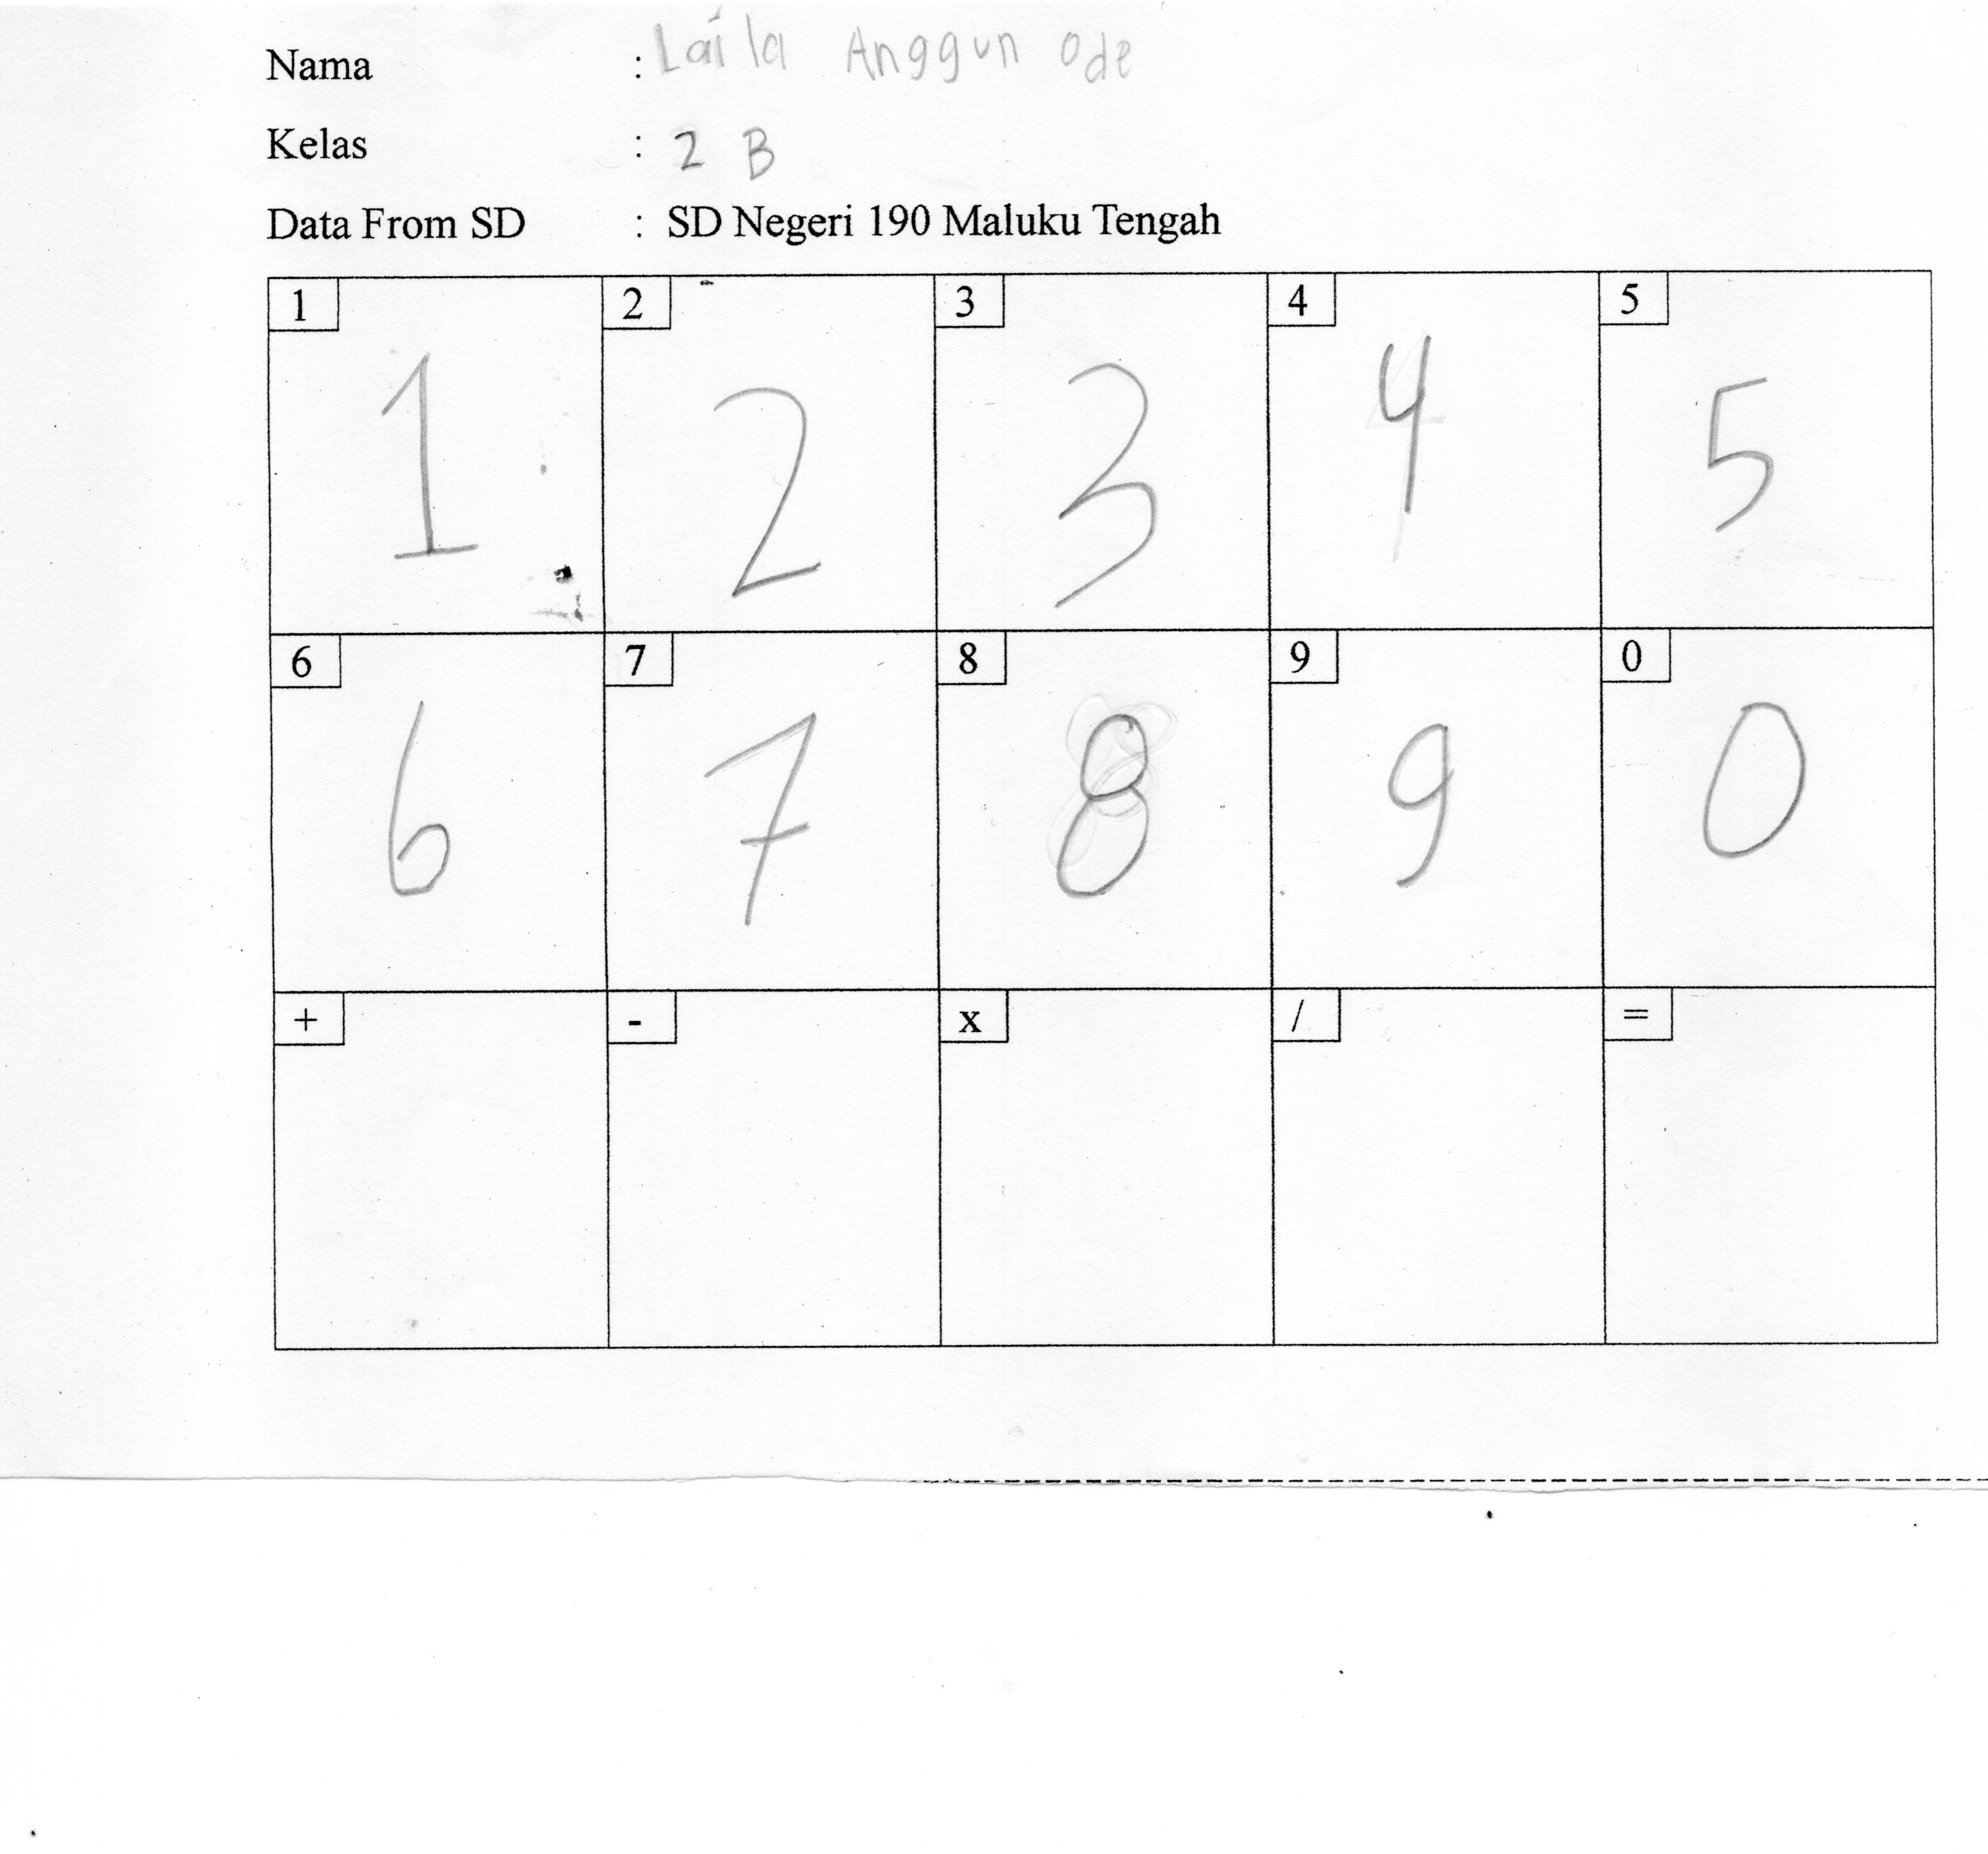 Nama : Laila Anggun Ode
Kelas : 2 B
Data From SD : SD Negeri 190 Maluku Tengah
1 2 3 4 5
1 2 3 4 5
6 7 8 9 0
6 7 8 9 0
+ - x / =